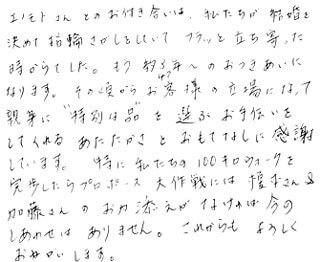 エノモトさん とのお付き合いは、私たちが 結婚を
決めて指輪さがしをしていて フラッと立ち寄った
時からでした。もう 約3年〜のおつきあいに
なります。その度から お客様の立場になって
親身に "特別な品"を 選ぶ お手伝いを
してくれる あたたかさ と おもてなしに 感謝
しています。 特に 私たちの 100キロウォークを
完歩したらプロポーズ 大作戦には 榎本さん&
加藤さん の お力添えがなければ 今の
しあわせは ありません。これからも よろしく
お願いします。